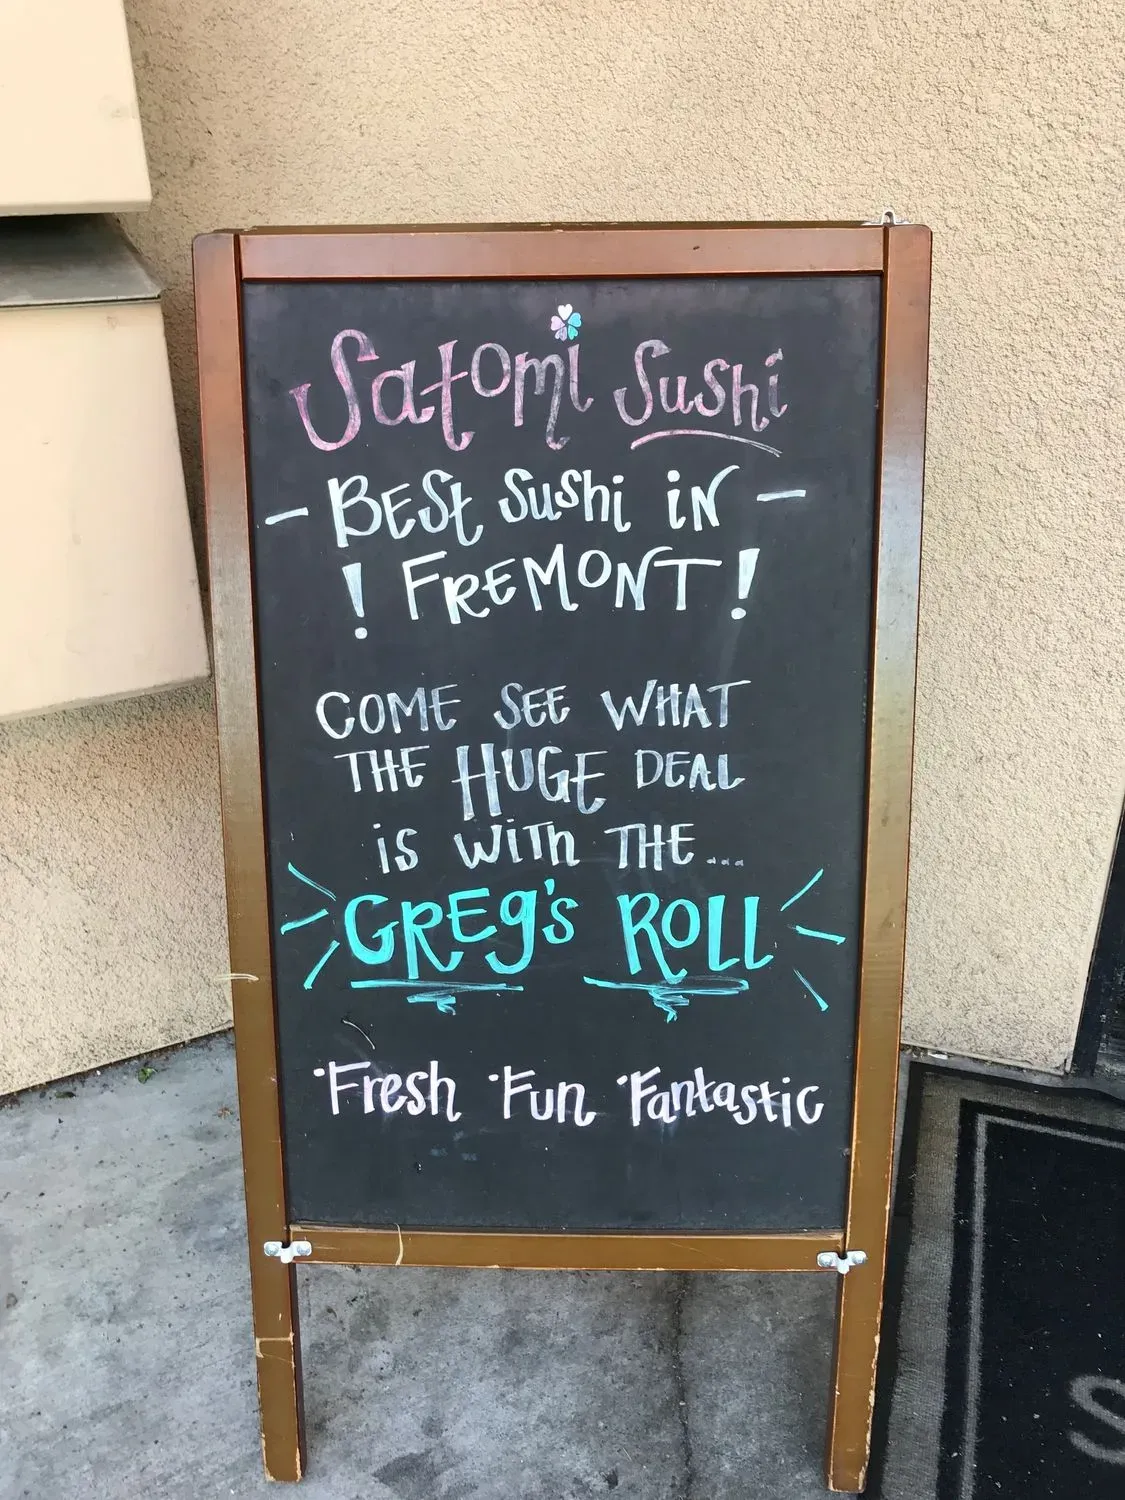 Satomi Sushi
- BEST Sushi iN -
! FREMONT !
COME SEE WHAT
THE HUGE DEAL
iS WiTh THE...
GREg's ROLL
·Fresh ·Fun ·Fantastic